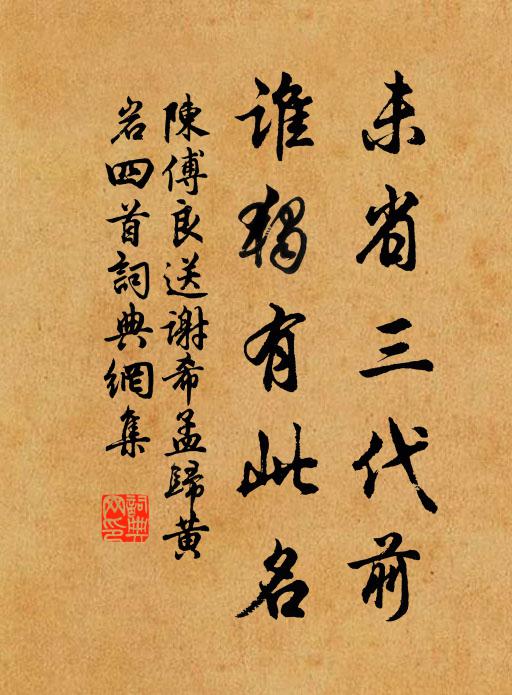 未省三代前
誰獨有此名
陳傅良送謝希孟歸黃
岩四首詞典網集
詞典网印